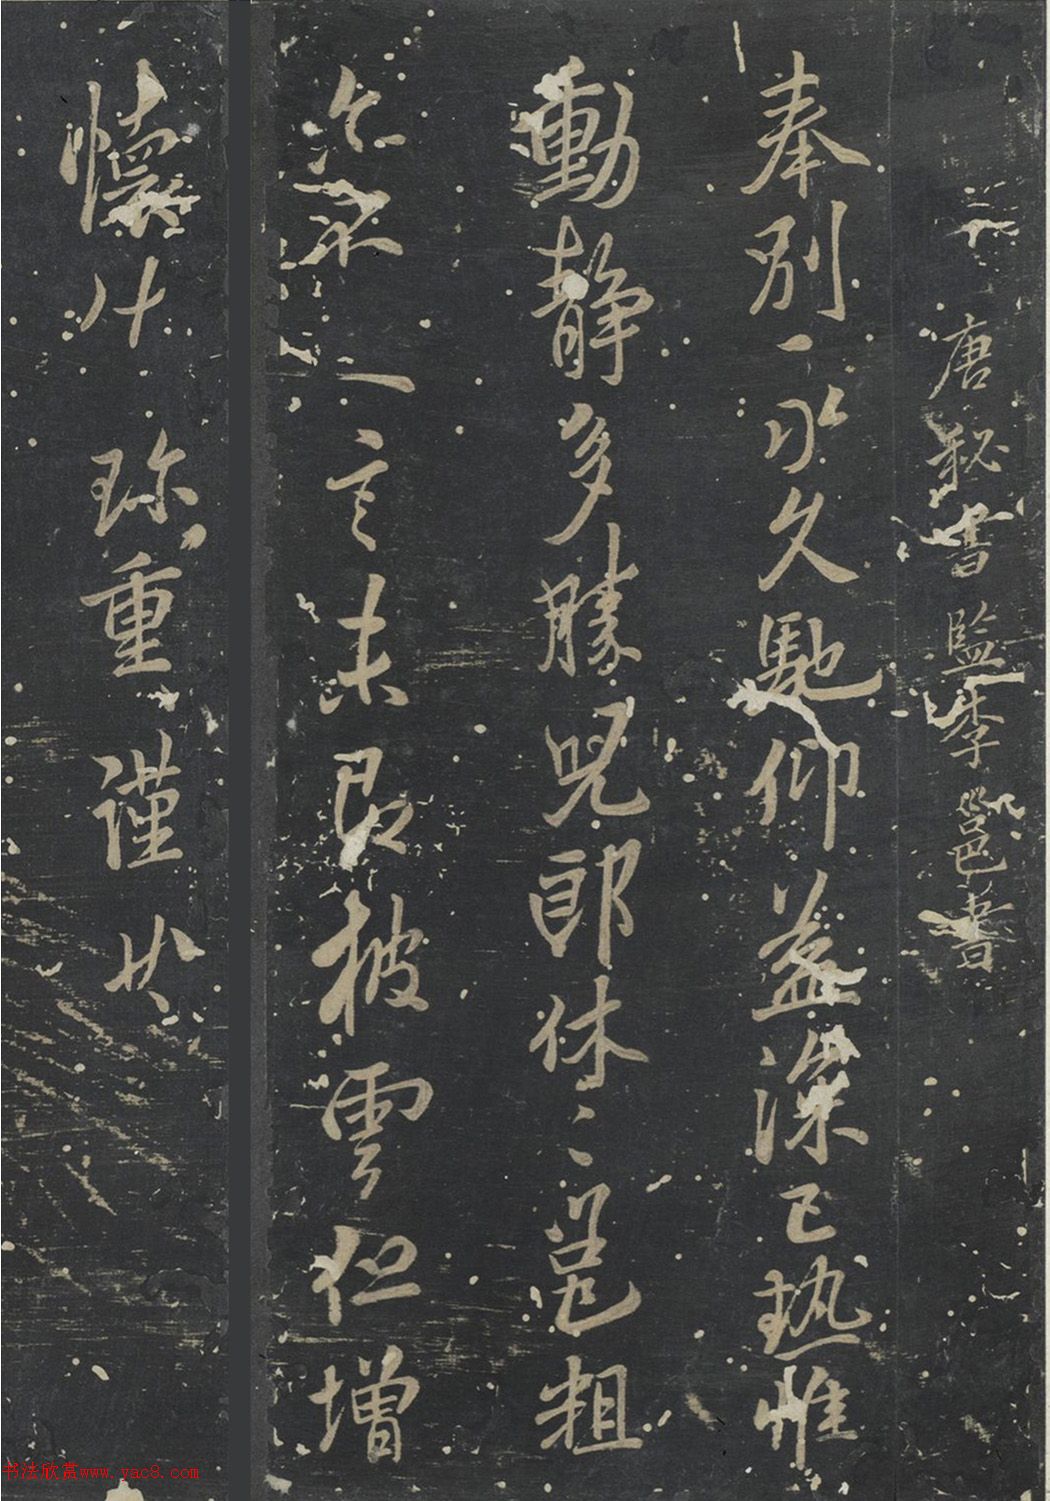 唐秘書監李邕書
奉別永久馳仰益深已熱惟
動靜多勝兒郎休休邕粗
一言未即披雲但增
懷什珍重謹
书法欣赏www.yac8.com